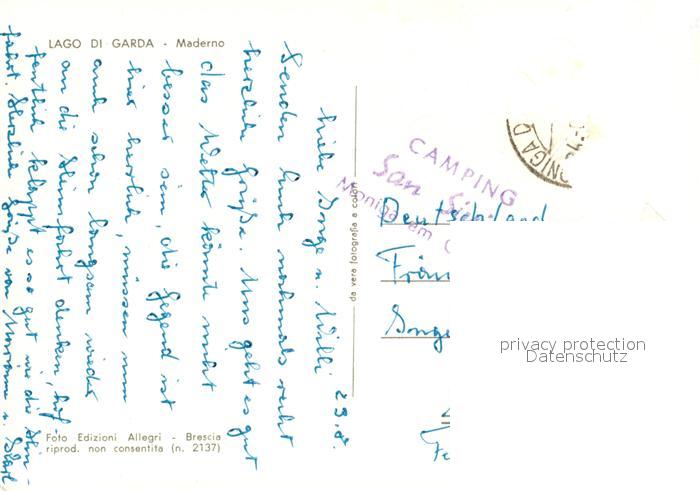 LAGO DI GARDA - Maderno
Liebe Inge u. Willi 23.8.
Senden Euch nochmals recht
herzliche Grüße. Uns geht es gut
das Wetter könnte nicht
besser sein, die Gegend ist
hier herrlich, müssen nun
auch schon langsam wieder
an die Heimfahrt denken, hof-
fentlich klappt es so gut wie die Hin-
fahrt. Herzliche Grüße von Marianne u.
Foto Edizioni Allegri - Brescia
riprod. non consentita (n. 2137)
da vera fotografia a colori
CAMPING
San
Moniga
MONIGA D
Deutschland
Inge
privacy protection
Datenschutz